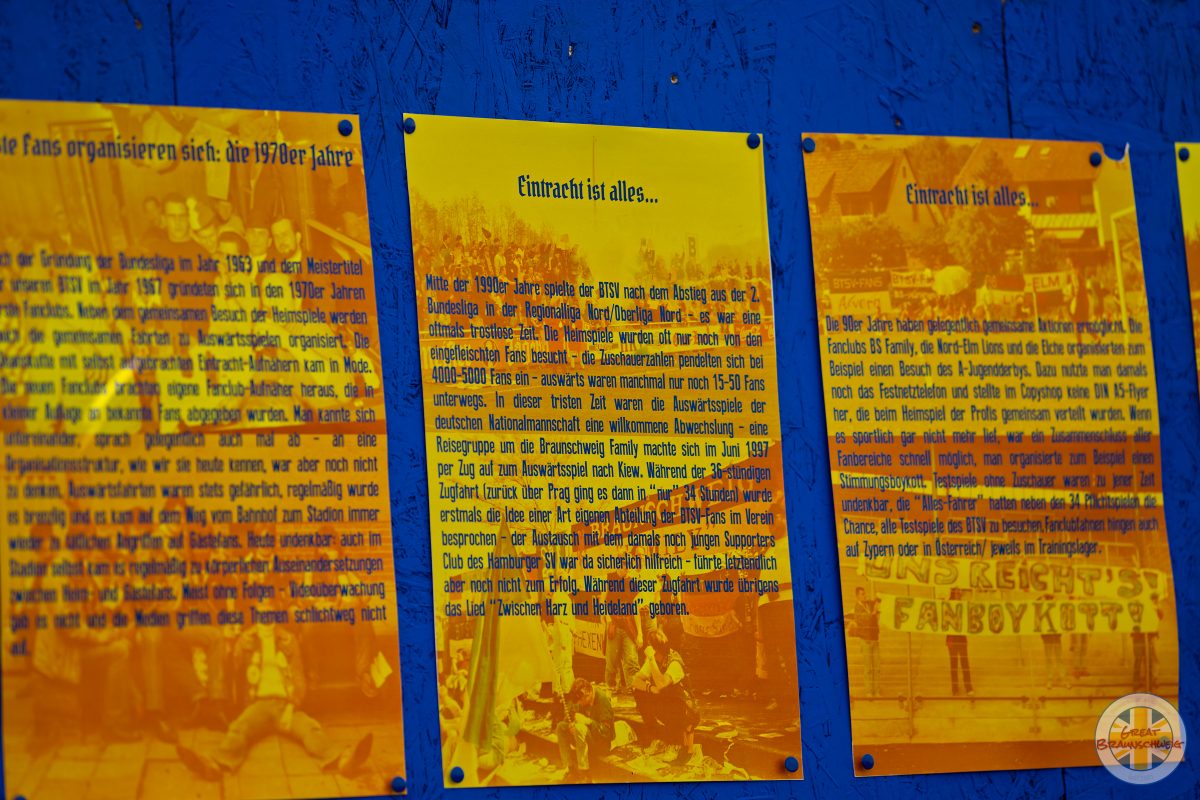 ste Fans organisieren sich: die 1970er Jahre
ch der Gründung der Bundesliga im Jahr 1963 und dem Meistertitel
r unseren BTSV im Jahr 1967 gründeten sich in den 1970er Jahren
erste Fanclubs. Neben dem gemeinsamen Besuch der Heimspiele werden
auch die gemeinsamen Fahrten zu Auswärtsspielen organisiert. Die
mit selbst aufgebrachten Eintracht-Aufnähern kam in Mode.
Die neuen Fanclubs brachten eigene Fanclub-Aufnäher heraus, die in
kleiner Auflage an bekannte Fans abgegeben wurden. Man kannte sich
untereinander, sprach gelegentlich auch mal ab - an eine
Organisationsstruktur, wie wir sie heute kennen, war aber noch nicht
zu denken. Auswärtsfahrten waren stets gefährlich, regelmäßig wurde
es brenzlig und es kam auf dem Weg vom Bahnhof zum Stadion immer
wieder zu tätlichen Angriffen auf Gästefans. Heute undenkbar: auch im
Stadion selbst kam es regelmäßig zu körperlichen Auseinandersetzungen
zwischen Heim- und Gästefans. Meist ohne Folgen - Videoüberwachung
gab es nicht und die Medien griffen diese Themen schlichtweg nicht
auf.
Eintracht ist alles...
Mitte der 1990er Jahre spielte der BTSV nach dem Abstieg aus der 2.
Bundesliga in der Regionalliga Nord/Oberliga Nord - es war eine
oftmals trostlose Zeit. Die Heimspiele wurden oft nur noch von den
eingefleischten Fans besucht - die Zuschauerzahlen pendelten sich bei
4000-5000 Fans ein - auswärts waren manchmal nur noch 15-50 Fans
unterwegs. In dieser tristen Zeit waren die Auswärtsspiele der
deutschen Nationalmannschaft eine willkommene Abwechslung - eine
Reisegruppe um die Braunschweig Family machte sich im Juni 1997
per Zug auf zum Auswärtsspiel nach Kiew. Während der 36-stündigen
Zugfahrt (zurück über Prag ging es dann in "nur" 34 Stunden) wurde
erstmals die Idee einer Art eigenen Abteilung der BTSV-Fans im Verein
besprochen - der Austausch mit dem damals noch jungen Supporters
Club des Hamburger SV war da sicherlich hilfreich - führte letztendlich
aber noch nicht zum Erfolg. Während dieser Zugfahrt wurde übrigens
das Lied "Zwischen Harz und Heideland" geboren.
Eintracht ist alles...
BTSV-FAN
ELM
Die 90er Jahre haben gelegentlich gemeinsame Aktionen ermöglicht. Die
Fanclubs BS Family, die Nord-Elm Lions und die Elche organisierten zum
Beispiel einen Besuch des A-Jugendderbys. Dazu nutzte man damals
noch das Festnetztelefon und stellte im Copyshop keine DIN A5-Flyer
her, die beim Heimspiel der Profis gemeinsam verteilt wurden. Wenn
es sportlich gar nicht mehr lief, war ein Zusammenschluss aller
Fanbereiche schnell möglich, man organisierte zum Beispiel einen
Stimmungsboykott. Testspiele ohne Zuschauer waren zu jener Zeit
undenkbar, die "Alles-Fahrer" hatten neben den 34 Pflichtspielen die
Chance, alle Testspiele des BTSV zu besuchen, Fanclubfahnen hingen auch
auf Zypern oder in Österreich/ jeweils im Trainingslager.
UNS REICHT'S!
FANBOYKOTT!
GREAT
BRAUNSCHWEIG